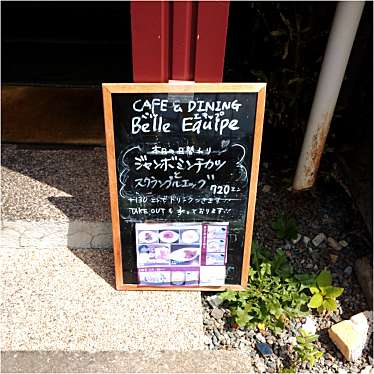 CAFE & DINING
ベル エキップ
Belle Equipe
本日の日替わり
ジャンボミンチカツ
と
スクランブルエッグ
720エン
+130エンでドリンクつきます!!
TAKE OUTもやっております!!